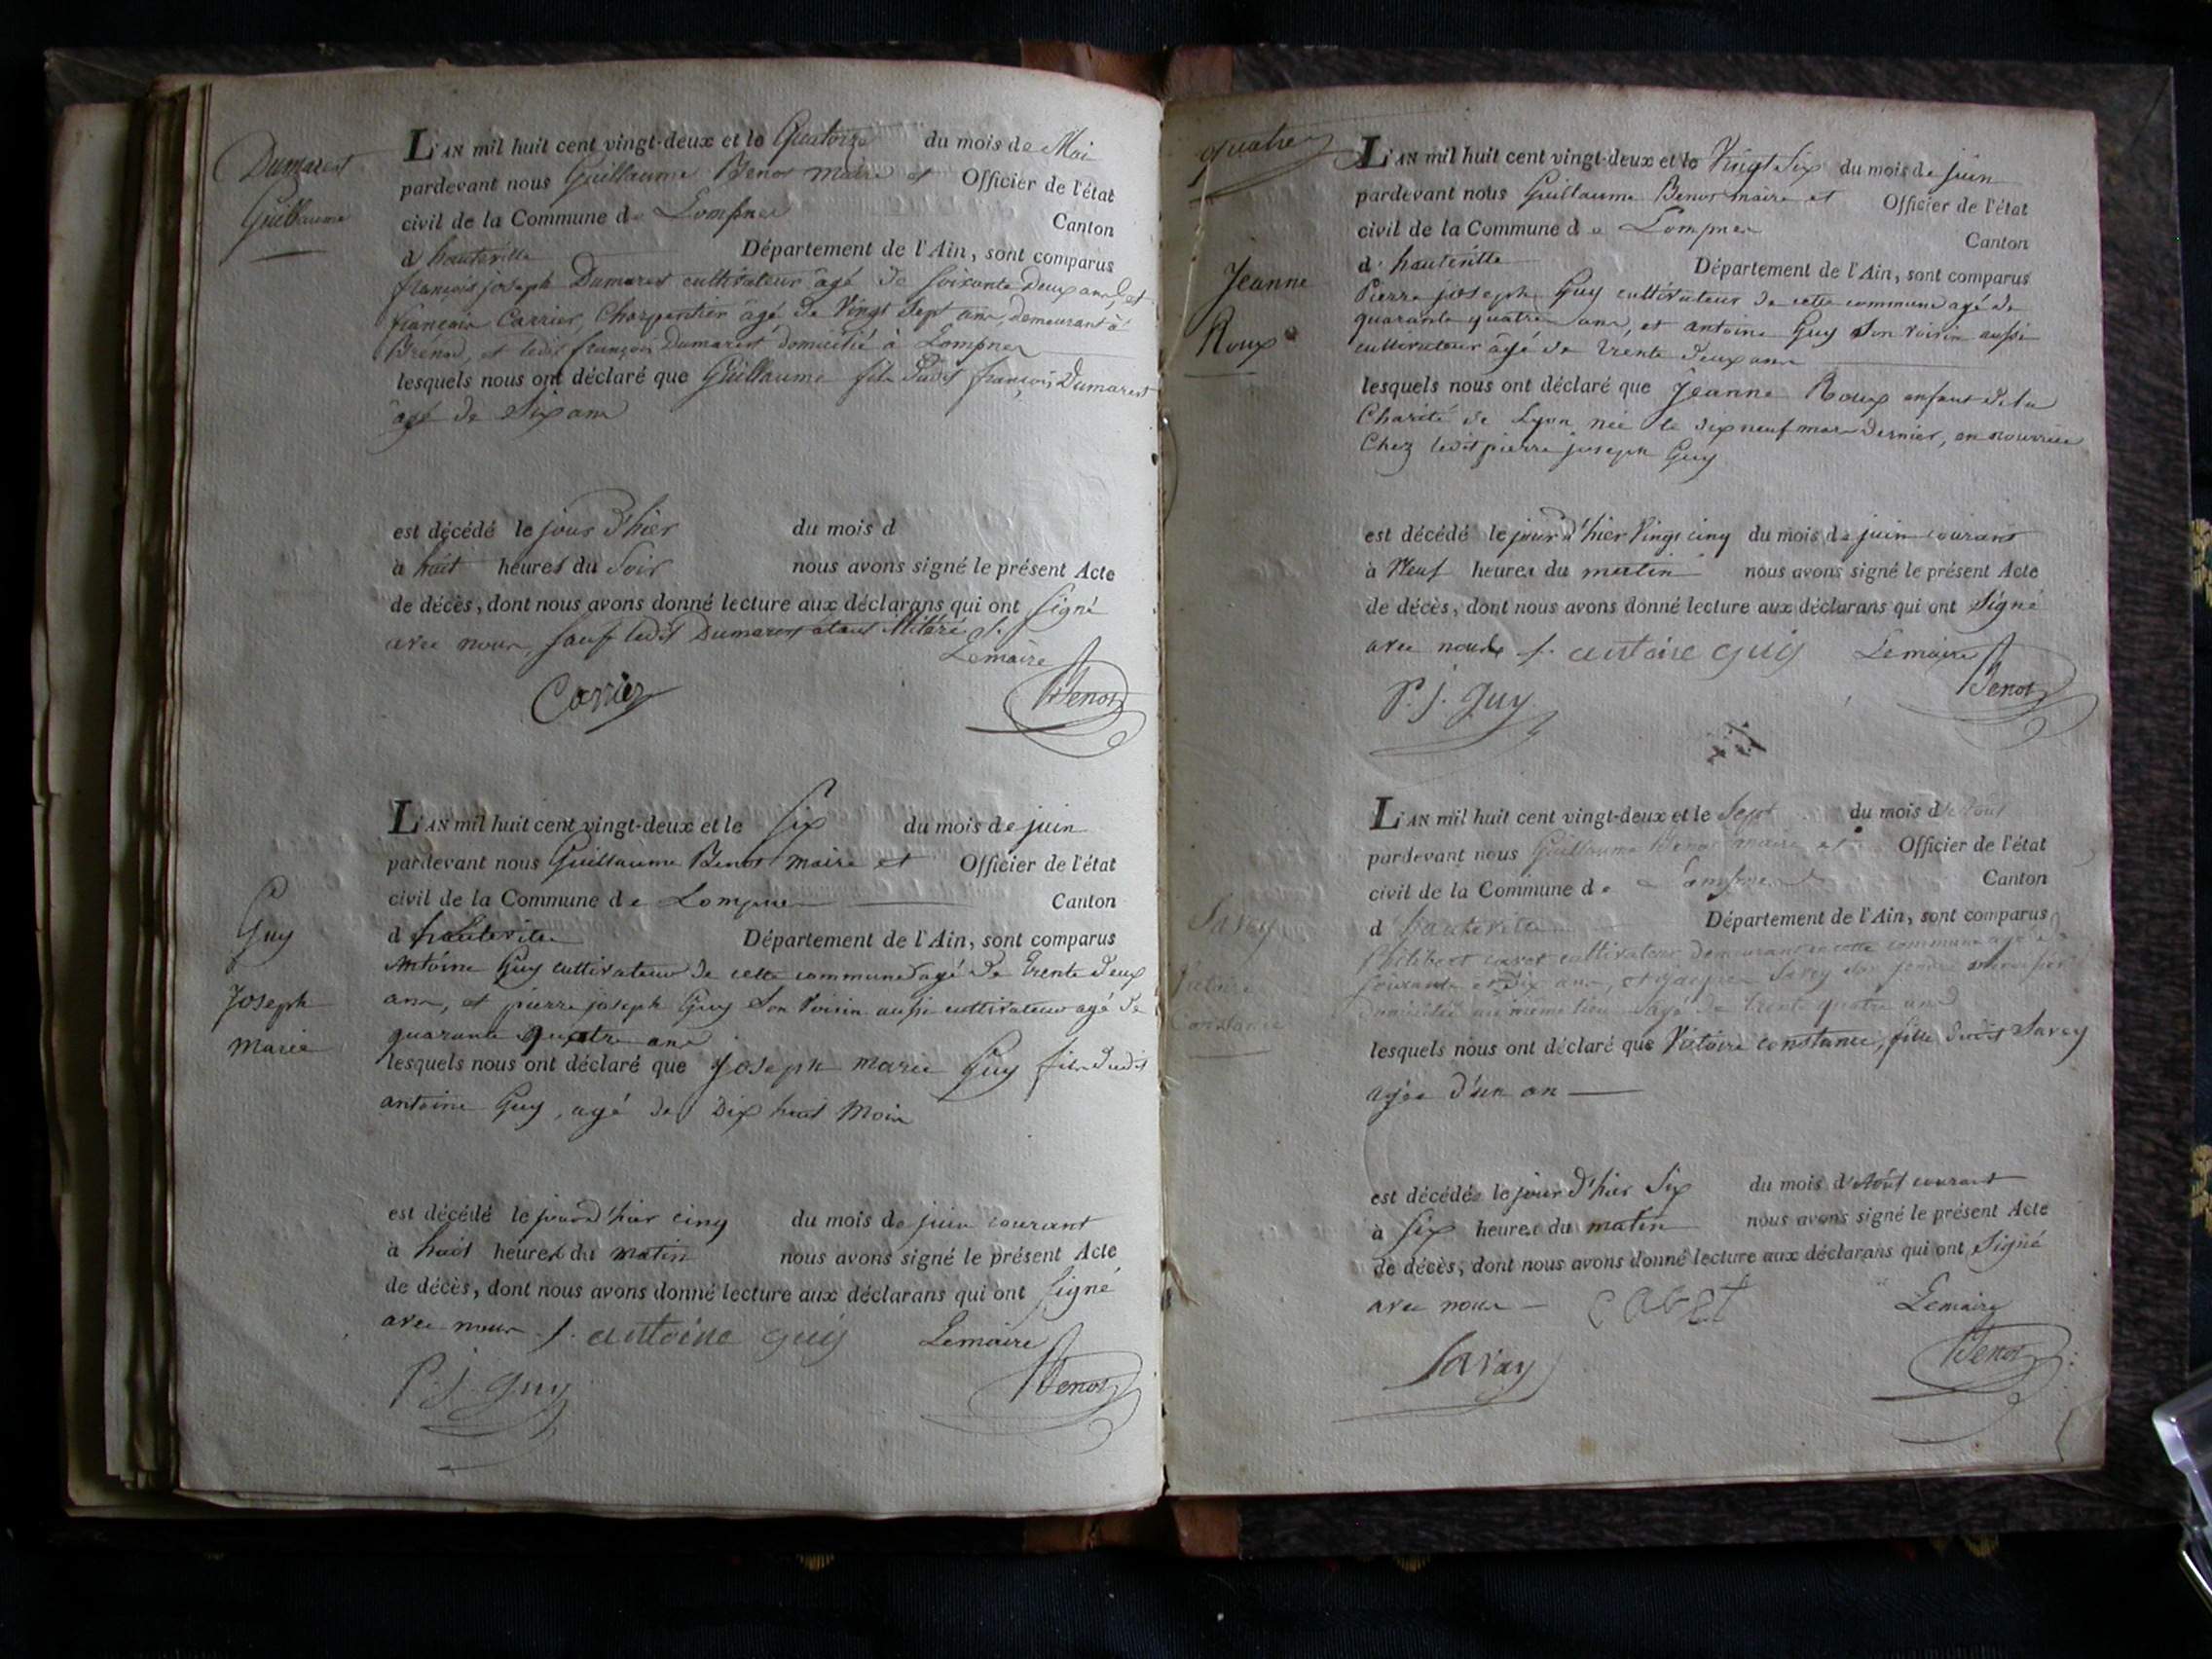 Dumarest
Guillaume
L'AN mil huit cent vingt-deux et le Quatorze du mois de Mai
pardevant nous Guillaume Benot maire et Officier de l'état
civil de la Commune de Lompnes Canton
d'hauteville Département de l'Ain, sont comparus
françois joseph Dumarest cultivateur âgé de soixante Deux ans, et
françois Carrier, Charpentier âgé de Vingt sept ans, demeurant à
Brénod, et ledit françois Dumarest domicilié à Lompnes
lesquels nous ont déclaré que Guillaume fils dudit françois Dumarest
âgé de Six ans
est décédé le jour d'hier du mois d
à huit heures du Soir nous avons signé le présent Acte
de décès, dont nous avons donné lecture aux déclarans qui ont signé
avec nous, sauf ledit Dumarest étant
Lemaire
Carrier Benot
Guy
Joseph
Marie
L'AN mil huit cent vingt-deux et le Six du mois de juin
pardevant nous Guillaume Benot maire et Officier de l'état
civil de la Commune de Lompnes Canton
d'hauteville Département de l'Ain, sont comparus
Antoine Guy cultivateur de cette commune agé de trente deux
ans, et pierre joseph Guy Son Voisin aussi cultivateur agé de
quarante quatre ans
lesquels nous ont déclaré que Joseph marie Guy fils dudit
antoine Guy, agé de Dix huit Mois
est décédé le jour d'hier cinq du mois de juin courant
à huit heures du matin nous avons signé le présent Acte
de décès, dont nous avons donné lecture aux déclarans qui ont signé
avec nous antoine guy Lemaire
P. J. Guy Benot
quatre
Jeanne
Roux
L'AN mil huit cent vingt-deux et le Vingt Six du mois de juin
pardevant nous Guillaume Benot maire et Officier de l'état
civil de la Commune de Lompnes Canton
d'hauteville Département de l'Ain, sont comparus
Pierre joseph Guy cultivateur de cette commune agé de
quarante quatre ans, et antoine Guy Son voisin aussi
cultivateur âgé de trente deux ans
lesquels nous ont déclaré que Jeanne Roux enfant de la
Charité de Lyon née le dix neuf mars dernier, en nourrice
Chez ledit pierre joseph Guy
est décédé le jour d'hier Vingt cinq du mois de juin courant
à Neuf heures du matin nous avons signé le présent Acte
de décès, dont nous avons donné lecture aux déclarans qui ont Signé
avec nous antoine guy Lemaire
P. J. Guy Benot
Savey
Victoire
Constance
L'AN mil huit cent vingt-deux et le Sept du mois d'Août
pardevant nous Guillaume Benot maire et Officier de l'état
civil de la Commune de Lompnes Canton
d'hauteville Département de l'Ain, sont comparus
Philibert Cavet cultivateur demeurant en cette commune agé de
soixante et Dix ans, et jacques Savey son
domicilié au même lieu agé de trente quatre ans
lesquels nous ont déclaré que Victoire constance, fille dudit Savey
agée d'un an
est décédée le jour d'hier Six du mois d'Août courant
à Six heures du matin nous avons signé le présent Acte
de décès, dont nous avons donné lecture aux déclarans qui ont Signé
avec nous Cavet Lemaire
Savey Benot